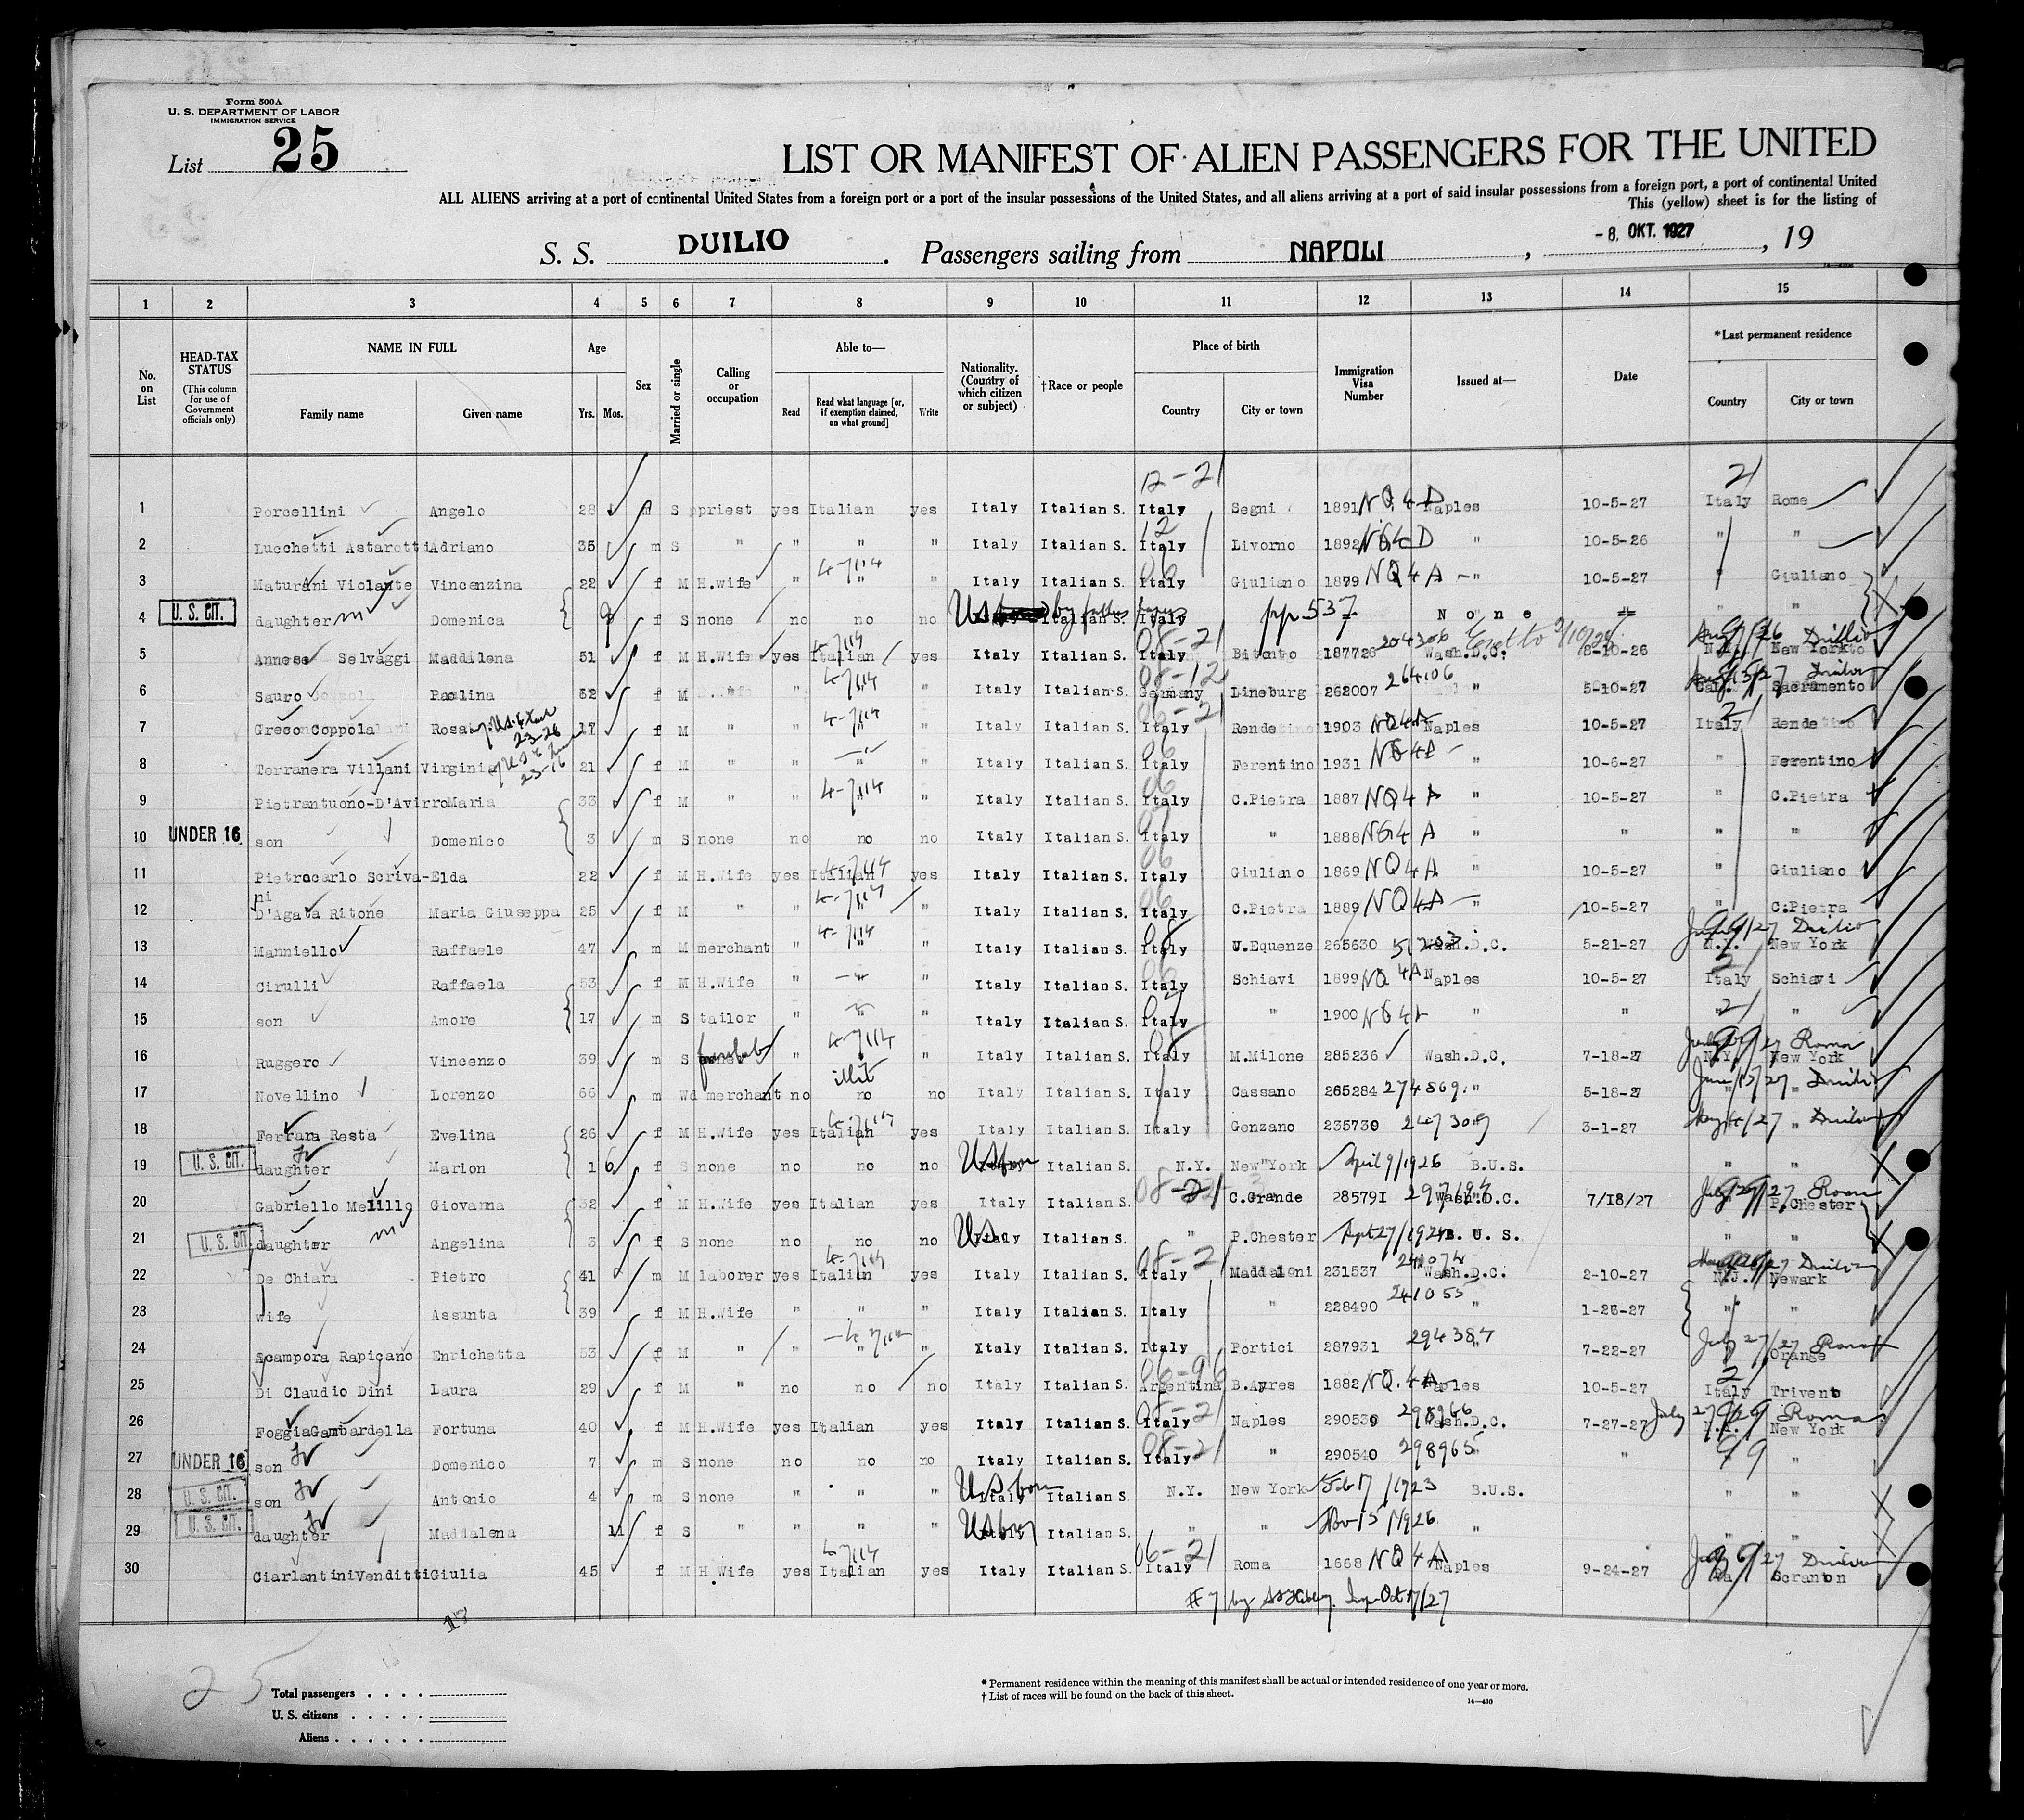 Form 500A
U. S. DEPARTMENT OF LABOR
IMMIGRATION SERVICE
List 25
LIST OR MANIFEST OF ALIEN PASSENGERS FOR THE UNITED
ALL ALIENS arriving at a port of continental United States from a foreign port or a port of the insular possessions of the United States, and all aliens arriving at a port of said insular possessions from a foreign port, a port of continental United
This (yellow) sheet is for the listing of
S. S. DUILIO. Passengers sailing from NAPOLI, -8. OKT. 1927, 19
1 2 3 4 5 6 7 8 9 10 11 12 13 14 15
No. on List
HEAD-TAX STATUS (This column for use of Government officials only)
NAME IN FULL
Family name Given name
Age
Yrs. Mos.
Sex
Married or single
Calling or occupation
Able to—
Read Read what language [or, if exemption claimed, on what ground] Write
Nationality. (Country of which citizen or subject)
†Race or people
Place of birth
Country City or town
Immigration Visa Number
Issued at—
Date
*Last permanent residence
Country City or town
12-21 21
1 Porcellini Angelo 28 m S priest yes Italian yes Italy Italian S. Italy Segni 1891 NQ 4 D Naples 10-5-27 Italy Rome
2 Lucchetti Astarotti Adriano 35 m S " " " " Italy Italian S. Italy Livorno 1892 D " 10-5-26 " "
3 Maturani Violante Vincenzina 22 f M H.wife " " " Italy Italian S. Italy Giuliano 1879 NQ 4 A " 10-5-27 " Giuliano
4 U. S. CIT. daughter Domenica 9 f S none no no no Italian S. Italy pp 537 None " "
5 Annese Selvaggi Maddalena 51 f M H.Wife yes Italian yes Italy Italian S. Italy Bitonto 187726 204306 Wash.D.C. 8-10-26 N.Y. New York
6 Sauro Paolina 52 f M " " " " Italy Italian S. Germany Lineburg 262007 264106 5-10-27 Cal. Sacramento
7 Greco Coppola Rosa 17 f M " " " " Italy Italian S. Italy Rende 1903 NQ4A Naples 10-5-27 Italy Rende
8 Terranera Villani Virginia 21 f M " " " " Italy Italian S. Italy Ferentino 1931 NQ4A " 10-6-27 " Ferentino
9 Pietrantuono-D'Avirro Maria 33 f M " " " " Italy Italian S. Italy C.Pietra 1887 NQ 4 A " 10-5-27 " C.Pietra
10 UNDER 16 son Domenico 3 m S none no no no Italy Italian S. Italy " 1888 NQ4 A " " " "
11 Pietrocarlo Scriva- Elda 22 f M H.Wife yes Italian yes Italy Italian S. Italy Giuliano 1869 NQ 4 A " 10-5-27 " Giuliano
ni
12 D'Agata Ritone Maria Giuseppa 25 f M " " " " Italy Italian S. Italy C.Pietra 1889 NQ4A " 10-5-27 " C.Pietra
13 Manniello Raffaele 47 m M merchant " " " Italy Italian S. Italy U.Equenze 265630 Wash.D.C. 5-21-27 N.Y. New York
14 Cirulli Raffaela 53 f M H.Wife " " " Italy Italian S. Italy Schiavi 1899 NQ 4A Naples 10-5-27 Italy Schiavi
15 son Amore 17 m S tailor " " " Italy Italian S. Italy " 1900 " " " "
16 Ruggero Vincenzo 39 m S " " " Italy Italian S. Italy M.Milone 285236 Wash.D.C. 7-18-27 N.Y. New York
17 Novellino Lorenzo 66 m Wd merchant no illit no no Italy Italian S. Italy Cassano 265284 274869 " 5-18-27 " "
18 Ferrara Resta Evelina 26 f M H.Wife yes Italian yes Italy Italian S. Italy Genzano 235730 247309 3-1-27 " "
19 U. S. CIT. daughter Marion 1 6 f S none no no no US born Italian S. N.Y. New York April 9/1926 B.U.S. " "
20 Gabriello Melillo Giovanna 32 f M H.Wife yes Italian yes Italy Italian S. C.Grande 285791 297197 Wash.D.C. 7/18/27 P.Chester
21 U. S. CIT. daughter Angelina 3 f S none no no no Italy Italian S. " P.Chester Sept 27/1924 B. U. S. " "
22 De Chiara Pietro 41 m M laborer yes Italian yes Italy Italian S. Italy Maddaloni 231537 241074 Wash.D.C. 2-10-27 N.J. Newark
23 wife Assunta 39 f M H.Wife " " " Italy Italian S. Italy " 228490 241055 " 1-26-27 " "
24 Acampora Rapicano Enrichetta 53 f M " " " " Italy Italian S. Italy Portici 287931 294387 " 7-22-27 " Orange
25 Di Claudio Dini Laura 29 f M " no no no Italy Italian S. Argentina B.Ayres 1882 NQ.4A Naples 10-5-27 Italy Trivento
26 Foggia Gambardella Fortuna 40 f M H.Wife yes Italian yes Italy Italian S. Italy Naples 290539 298966 Wash.D.C. 7-27-27 New York
27 UNDER 16 son Domenico 7 m S none no no no Italy Italian S. Italy " 290540 298965 " " "
28 U. S. CIT. son Antonio 4 m S none " " " US born Italy Italian S. N.Y. New York Feb 17/1923 B.U.S. " "
29 U. S. CIT. daughter Maddalena 11 f S " " " " US born Italian S. " " Nov 15/1926 " " "
30 Ciarlantini Venditti Giulia 45 f M H Wife yes Italian yes Italy Italian S. Italy Roma 1668 NQ4A Naples 9-24-27 Pa Scranton
17
25
Total passengers . . . .
U. S. citizens . . . . .
Aliens . . . . . .
* Permanent residence within the meaning of this manifest shall be actual or intended residence of one year or more.
† List of races will be found on the back of this sheet.
14—430